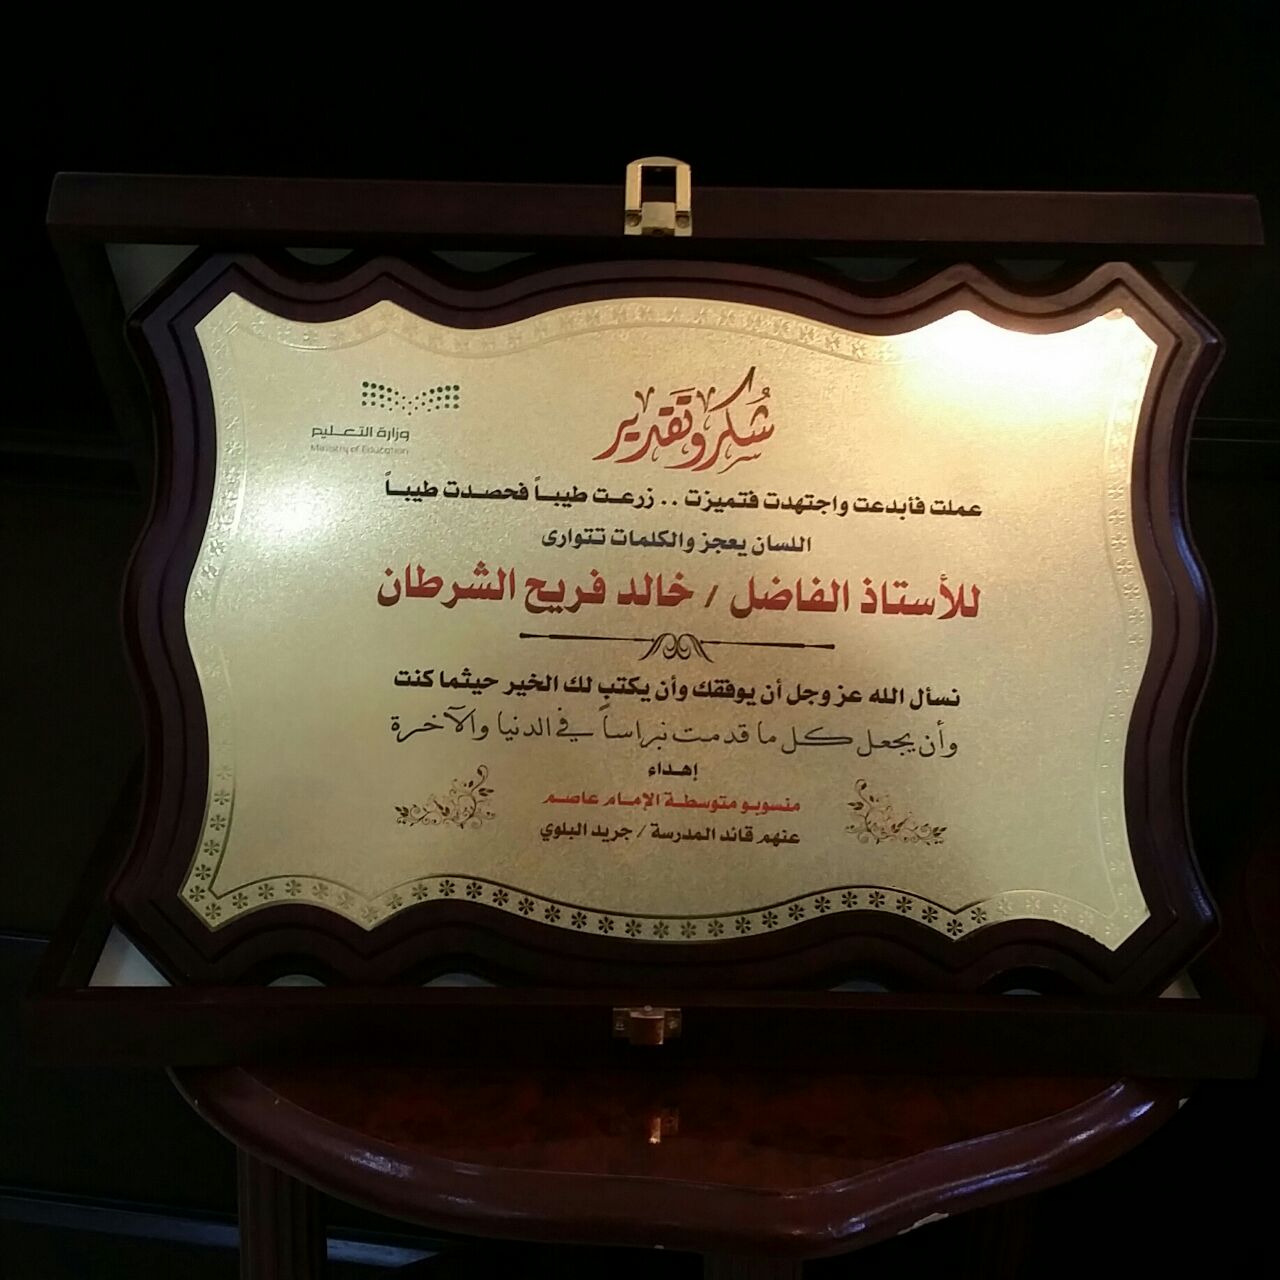 شكر وتقدير
وزارة التعليم
Ministry of Education
عملت فأبدعت واجتهدت فتميزت .. زرعت طيباً فحصدت طيباً
اللسان يعجز والكلمات تتوارى
للأستاذ الفاضل / خالد فريح الشرطان
نسأل الله عز وجل أن يوفقك وأن يكتب لك الخير حيثما كنت
وأن يجعل كل ما قدمت نبراساً في الدنيا والآخرة
إهداء
منسوبو متوسطة الإمام عاصم
عنهم قائد المدرسة / جريد البلوي